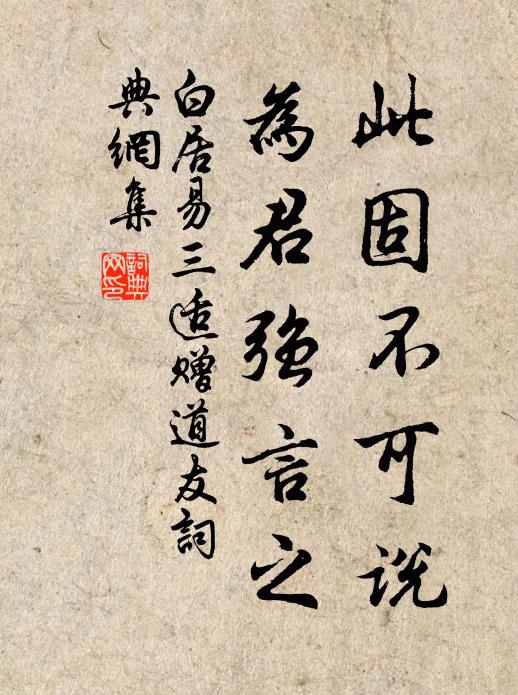 此固不可説
為君強言之
白居易三适贈道友詞
典網集
詞典網印